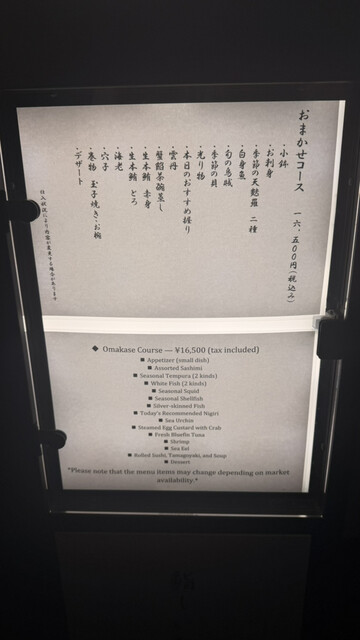 おまかせコース　一六、五００円（税込み）
・小鉢
・お刺身
・季節の天麩羅　二種
・白身魚
・旬の烏賊
・季節の貝
・光り物
・本日のおすすめ握り
・雲丹
・蟹餡茶碗蒸し
・生本鮪　赤身
・生本鮪　とろ
・海老
・穴子
・巻物　玉子焼き・お椀
・デザート
仕入状況により内容が変更する場合があります
◆ Omakase Course — ¥16,500 (tax included)
■ Appetizer (small dish)
■ Assorted Sashimi
■ Seasonal Tempura (2 kinds)
■ White Fish (2 kinds)
■ Seasonal Squid
■ Seasonal Shellfish
■ Silver-skinned Fish
■ Today's Recommended Nigiri
■ Sea Urchin
■ Steamed Egg Custard with Crab
■ Fresh Bluefin Tuna
■ Shrimp
■ Sea Eel
■ Rolled Sushi, Tamagoyaki, and Soup
■ Dessert
*Please note that the menu items may change depending on market
availability.*